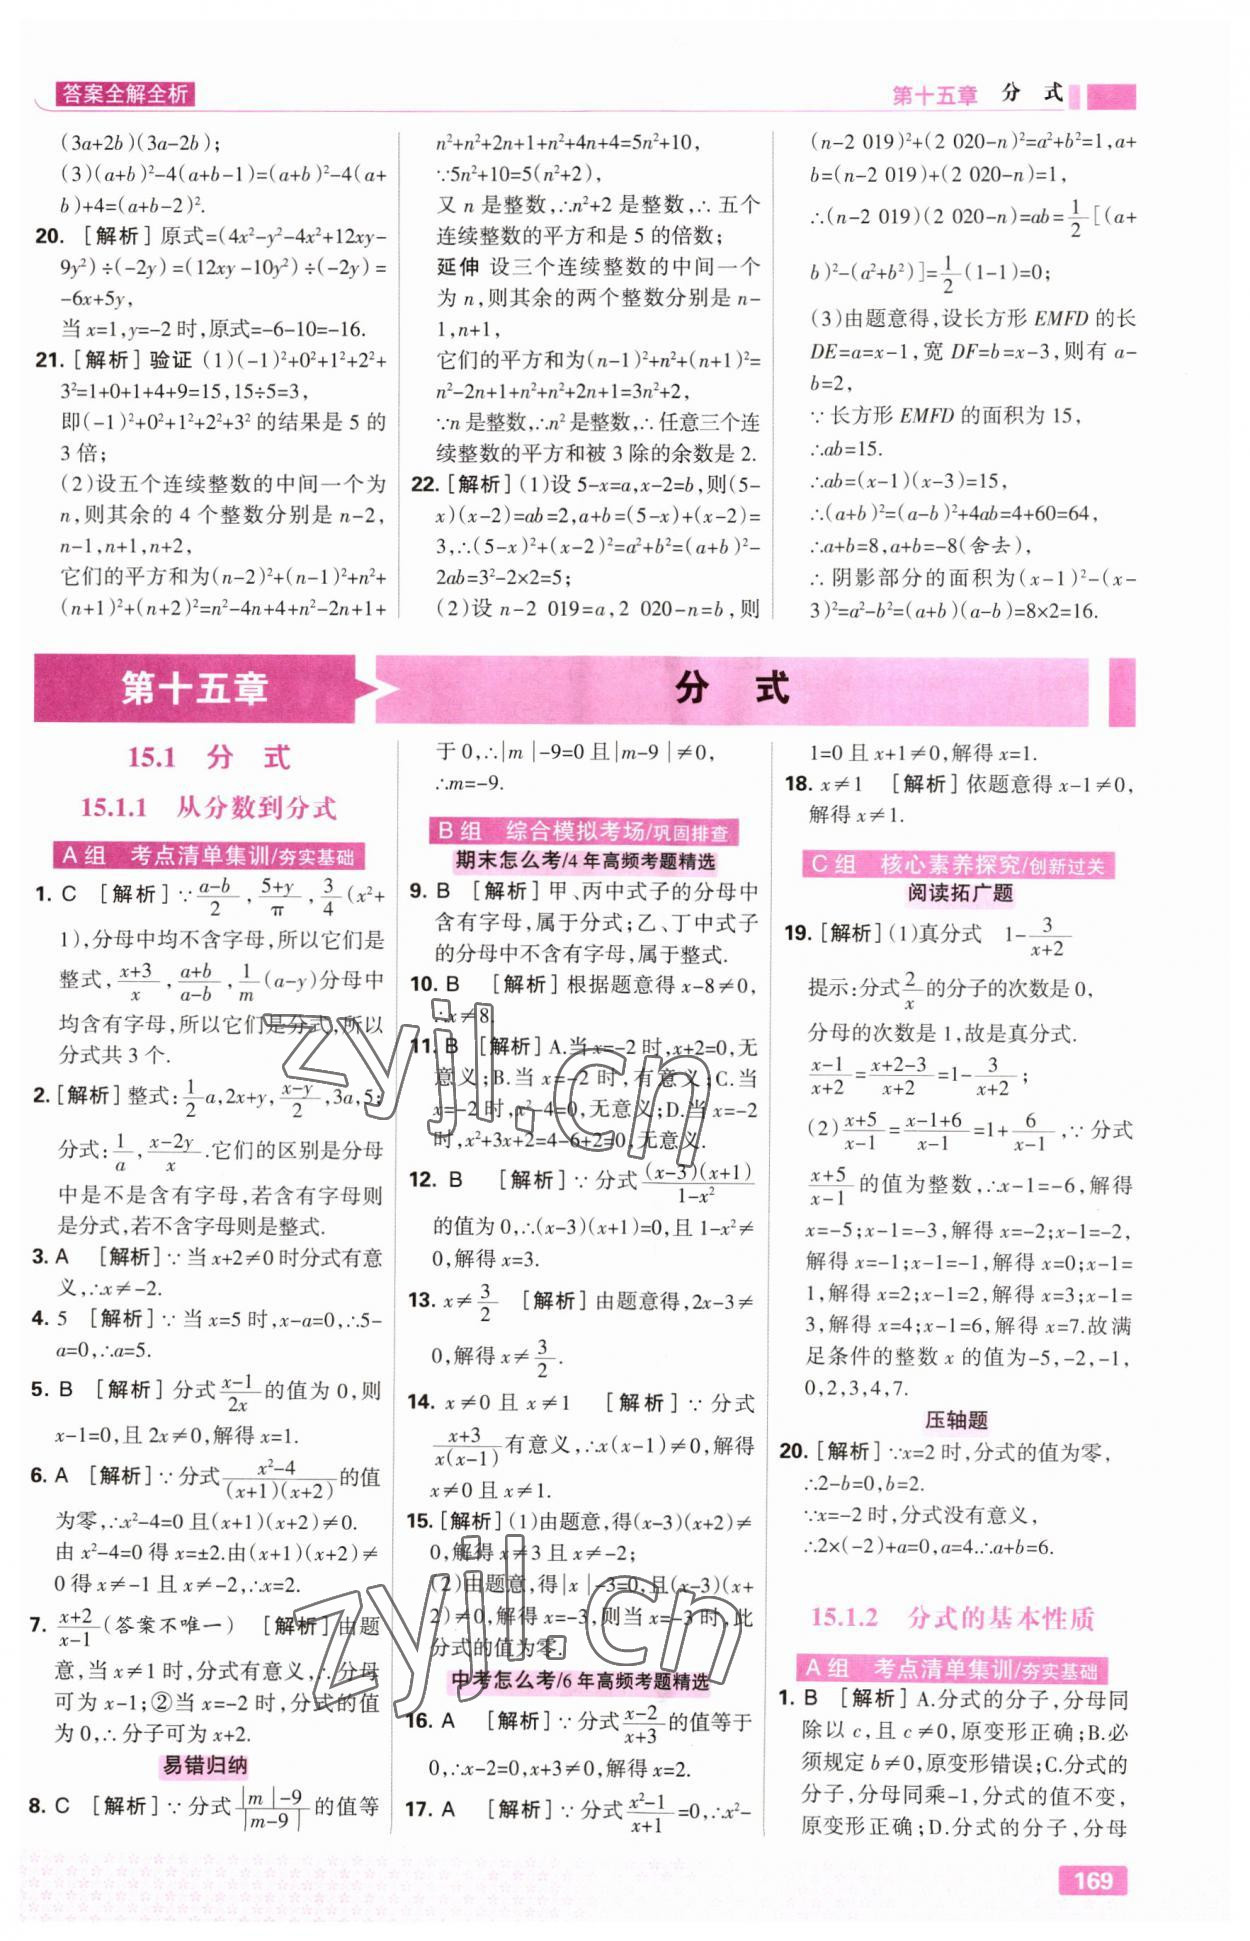 答案全解全析
第十五章 分 式
(3a+2b)(3a-2b);
(3)(a+b)²-4(a+b-1)=(a+b)²-4(a+
b)+4=(a+b-2)².
20. [解析]原式=(4x²-y²-4x²+12xy-
9y²)÷(-2y)=(12xy-10y²)÷(-2y)=
-6x+5y,
当x=1,y=-2时,原式=-6-10=-16.
21. [解析]验证 (1)(-1)²+0²+1²+2²+
3²=1+0+1+4+9=15,15÷5=3,
即(-1)²+0²+1²+2²+3²的结果是5的
3倍;
(2)设五个连续整数的中间一个为
n,则其余的4个整数分别是n-2,
n-1,n+1,n+2,
它们的平方和为(n-2)²+(n-1)²+n²+
(n+1)²+(n+2)²=n²-4n+4+n²-2n+1+
n²+n²+2n+1+n²+4n+4=5n²+10,
∵5n²+10=5(n²+2),
又n是整数,∴n²+2是整数,∴五个
连续整数的平方和是5的倍数;
延伸 设三个连续整数的中间一个
为n,则其余的两个整数分别是n-
1,n+1,
它们的平方和为(n-1)²+n²+(n+1)²=
n²-2n+1+n²+n²+2n+1=3n²+2,
∵n是整数,∴n²是整数,∴任意三个连
续整数的平方和被3除的余数是2.
22. [解析](1)设5-x=a,x-2=b,则(5-
x)(x-2)=ab=2,a+b=(5-x)+(x-2)=
3,∴(5-x)²+(x-2)²=a²+b²=(a+b)²-
2ab=3²-2×2=5;
(2)设n-2 019=a,2 020-n=b,则
(n-2 019)²+(2 020-n)²=a²+b²=1,a+
b=(n-2 019)+(2 020-n)=1,
∴(n-2 019)(2 020-n)=ab=1/2[(a+
b)²-(a²+b²)]=1/2(1-1)=0;
(3)由题意得,设长方形EMFD的长
DE=a=x-1,宽DF=b=x-3,则有a-
b=2,
∵长方形EMFD的面积为15,
∴ab=15.
∴ab=(x-1)(x-3)=15,
∴(a+b)²=(a-b)²+4ab=4+60=64,
∴a+b=8,a+b=-8(舍去),
∴阴影部分的面积为(x-1)²-(x-
3)²=a²-b²=(a+b)(a-b)=8×2=16.
第十五章 分 式
15.1 分 式
15.1.1 从分数到分式
A组 考点清单集训/夯实基础
1. C [解析]∵(a-b)/2,(5+y)/π,3/4(x²+
1),分母中均不含字母,所以它们是
整式,(x+3)/x,(a+b)/(a-b),1/m(a-y)分母中
均含有字母,所以它们是分式,所以
分式共3个.
2. [解析]整式:1/2a,2x+y,(x-y)/2,3a,5;
分式:1/a,(x-2y)/x.它们的区别是分母
中是不是含有字母,若含有字母则
是分式,若不含字母则是整式.
3. A [解析]∵当x+2≠0时分式有意
义,∴x≠-2.
4. 5 [解析]∵当x=5时,x-a=0,∴5-
a=0,∴a=5.
5. B [解析]分式(x-1)/2x的值为0,则
x-1=0,且2x≠0,解得x=1.
6. A [解析]∵分式(x²-4)/((x+1)(x+2))的值
为零,∴x²-4=0且(x+1)(x+2)≠0.
由x²-4=0得x=±2.由(x+1)(x+2)≠
0得x≠-1且x≠-2,∴x=2.
7. (x+2)/(x-1)(答案不唯一) [解析]由题
意,当x≠1时,分式有意义,∴分母
可为x-1;②当x=-2时,分式的值
为0,∴分子可为x+2.
易错归纳
8. C [解析]∵分式(|m|-9)/|m-9|的值等
于0,∴|m|-9=0且|m-9|≠0,
∴m=-9.
B组 综合模拟考场/巩固排查
期末怎么考/4年高频考题精选
9. B [解析]甲、丙中式子的分母中
含有字母,属于分式;乙、丁中式子
的分母中不含有字母,属于整式.
10. B [解析]根据题意得x-8≠0,
∴x≠8.
11. B [解析]A.当x=-2时,x+2=0,无
意义;B.当x=-2时,有意义;C.当
x=-2时,x²-4=0,无意义;D.当x=-2
时,x²+3x+2=4-6+2=0,无意义.
12. B [解析]∵分式((x-3)(x+1))/(1-x²)
的值为0,∴(x-3)(x+1)=0,且1-x²≠
0,解得x=3.
13. x≠3/2 [解析]由题意得,2x-3≠
0,解得x≠3/2.
14. x≠0且x≠1 [解析]∵分式
(x+3)/(x(x-1))有意义,∴x(x-1)≠0,解得
x≠0且x≠1.
15. [解析](1)由题意,得(x-3)(x+2)≠
0,解得x≠3且x≠-2;
(2)由题意,得|x|-3=0,且(x-3)(x+
2)≠0,解得x=-3,则当x=-3时,此
分式的值为零.
中考怎么考/6年高频考题精选
16. A [解析]∵分式(x-2)/(x+3)的值等于
0,∴x-2=0,x+3≠0,解得x=2.
17. A [解析]∵分式(x²-1)/(x+1)=0,∴x²-
1=0且x+1≠0,解得x=1.
18. x≠1 [解析]依题意得x-1≠0,
解得x≠1.
C组 核心素养探究/创新过关
阅读拓广题
19. [解析](1)真分式 1-3/(x+2)
提示:分式2/x的分子的次数是0,
分母的次数是1,故是真分式.
(x-1)/(x+2)=(x+2-3)/(x+2)=1-3/(x+2);
(2)(x+5)/(x-1)=(x-1+6)/(x-1)=1+6/(x-1),∵分式
(x+5)/(x-1)的值为整数,∴x-1=-6,解得
x=-5;x-1=-3,解得x=-2;x-1=-2,
解得x=-1;x-1=-1,解得x=0;x-1=
1,解得x=2;x-1=2,解得x=3;x-1=
3,解得x=4;x-1=6,解得x=7.故满
足条件的整数x的值为-5,-2,-1,
0,2,3,4,7.
压轴题
20. [解析]∵x=2时,分式的值为零,
∴2-b=0,b=2.
∵x=-2时,分式没有意义,
∴2×(-2)+a=0,a=4.∴a+b=6.
15.1.2 分式的基本性质
A组 考点清单集训/夯实基础
1. B [解析]A.分式的分子,分母同
除以c,且c≠0,原变形正确;B.必
须规定b≠0,原变形错误;C.分式的
分子,分母同乘-1,分式的值不变,
原变形正确;D.分式的分子,分母
169
zyjl.cn
zyjl.cn